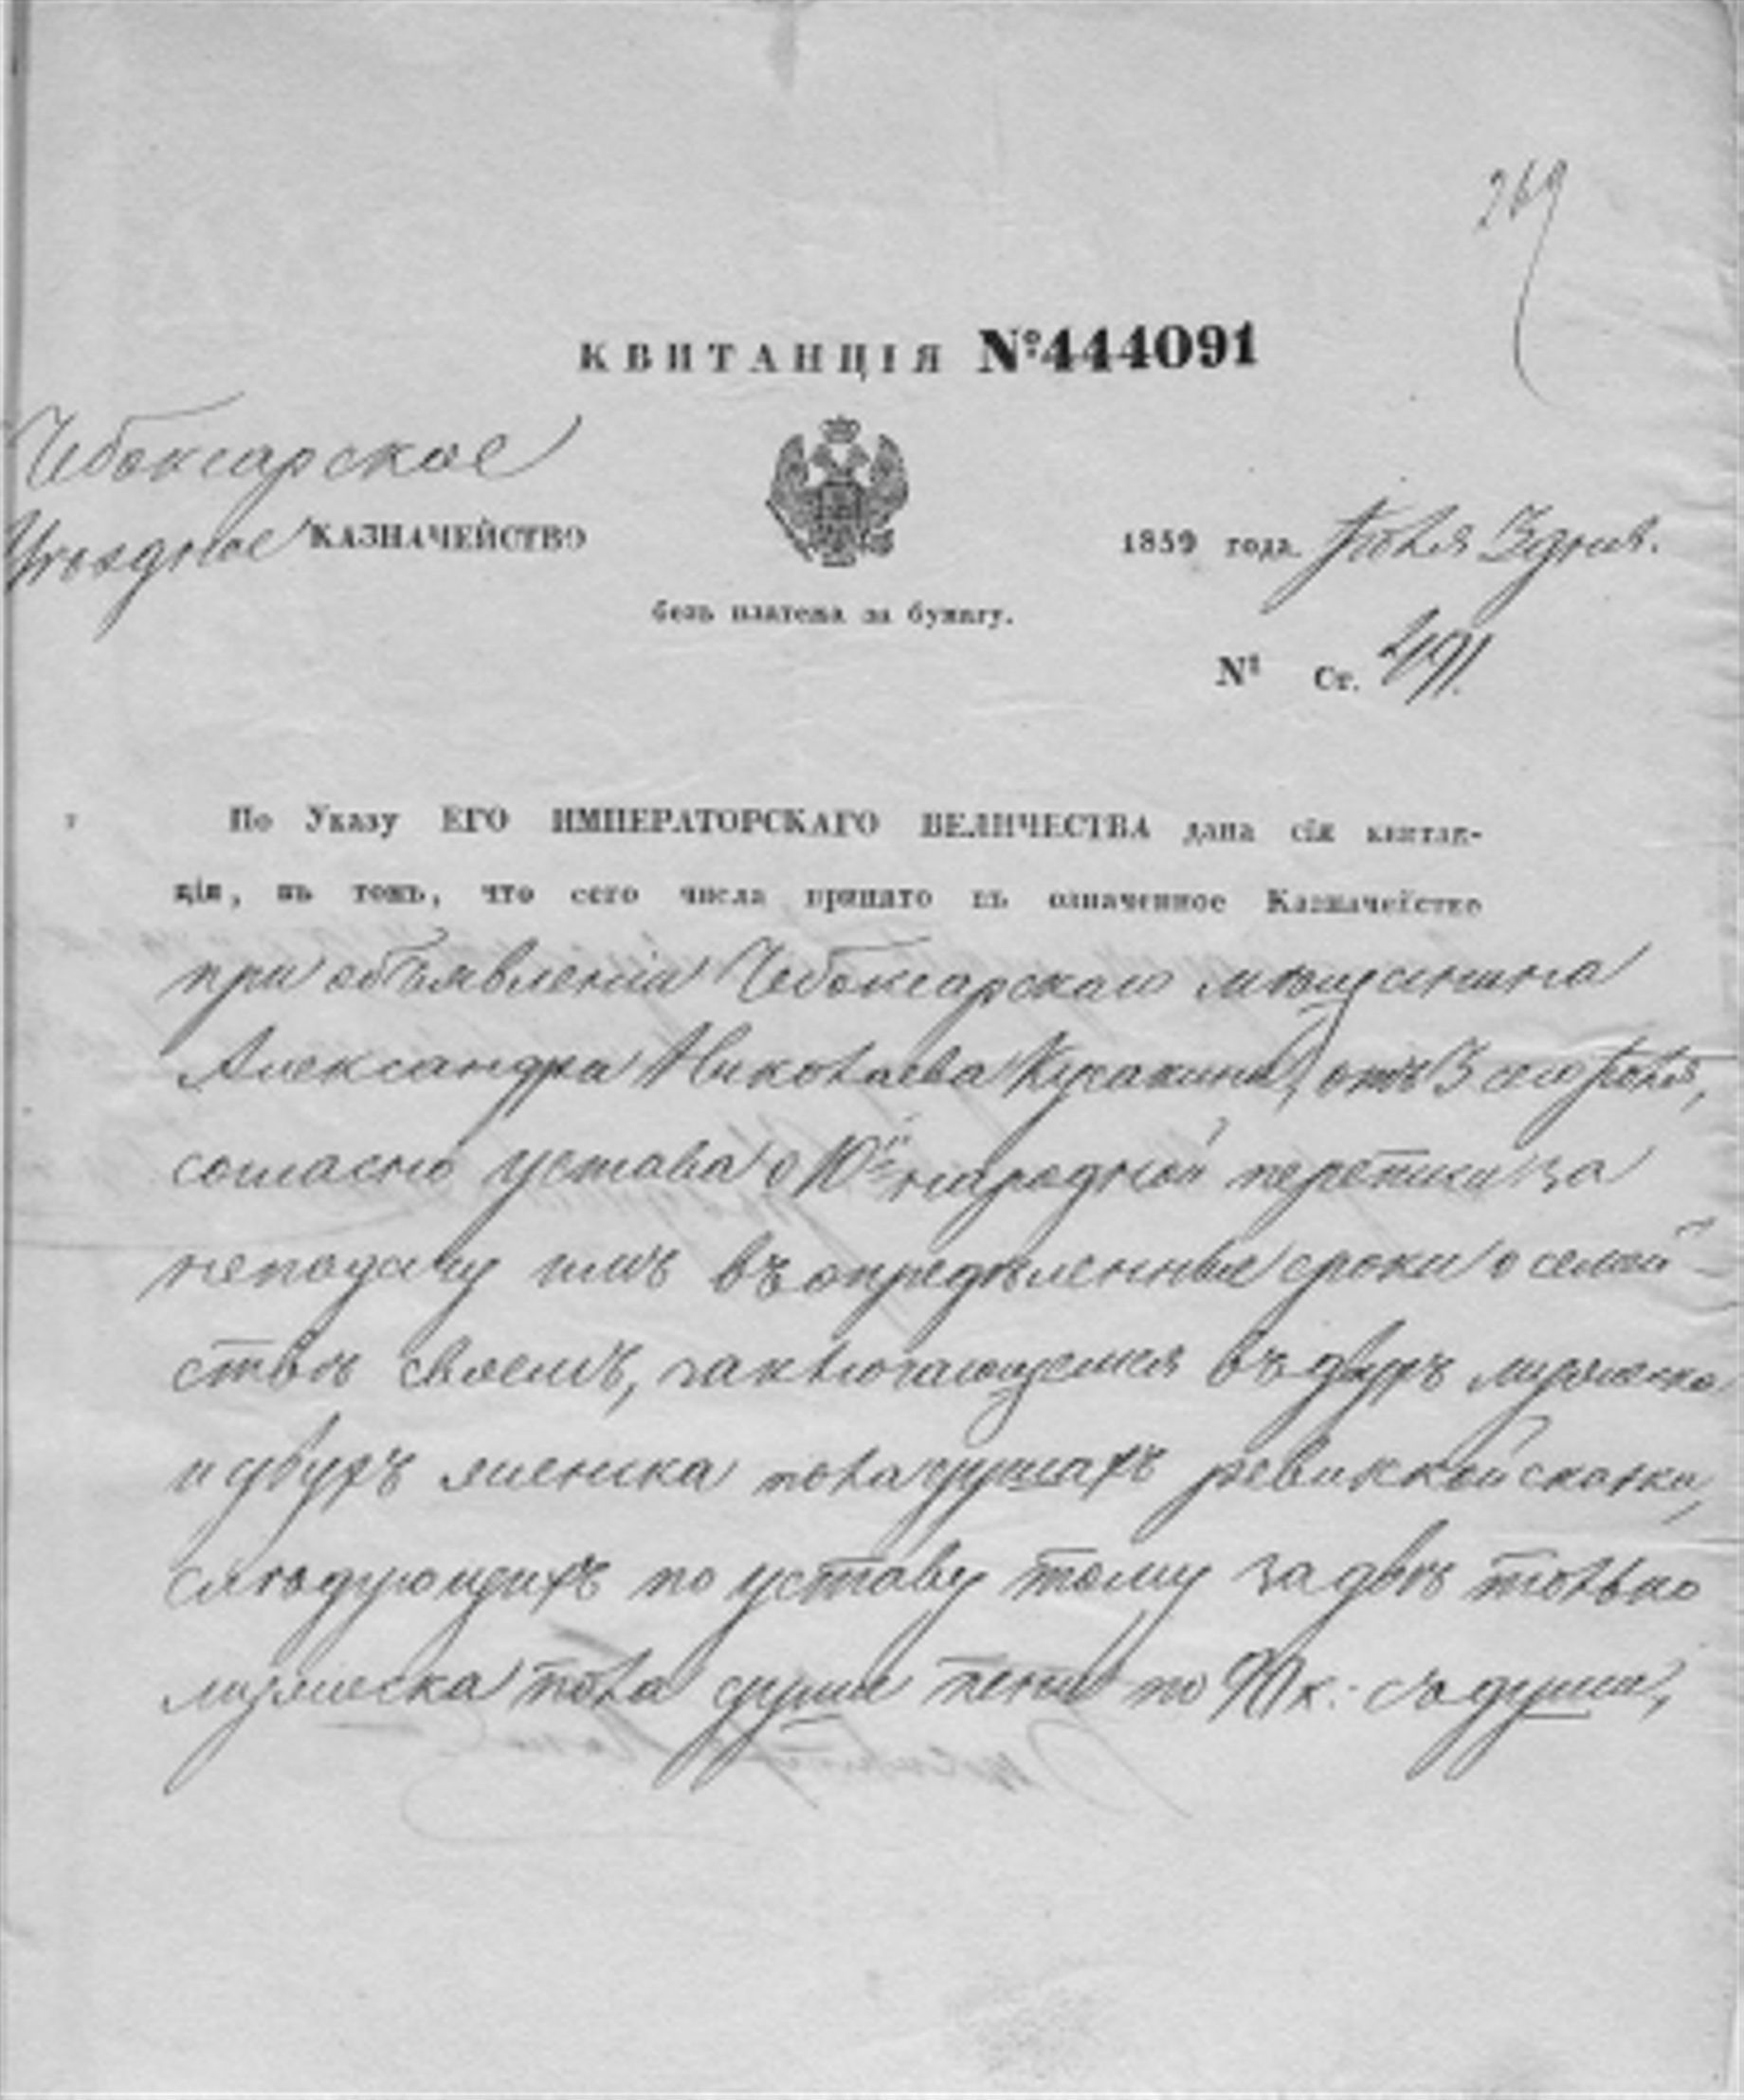 269
КВИТАНЦІЯ №444091
Чебоксарское
Уѣздное КАЗНАЧЕЙСТВО
1859 года Іюля 3 дня.
безъ платежа за бумагу.
№ Ст. 491.
По Указу ЕГО ИМПЕРАТОРСКАГО ВЕЛИЧЕСТВА дана сія квитан-
ція, въ томъ, что сего числа принято въ означенное Казначейство
при объявленіи Чебоксарскаго мѣщанина
Александра Николаева Кусакина, отъ 3 сего Іюля,
согласно устава о 10й народной переписи за
неподачу имъ въ опредѣленные сроки о семей-
ствѣ своемъ, заключающемся въ двухъ мужеска
и двухъ женска пола душахъ ревизской сказки,
слѣдующихъ по уставу тому за двѣ только
мужеска пола души пени по 90 к: съ души,